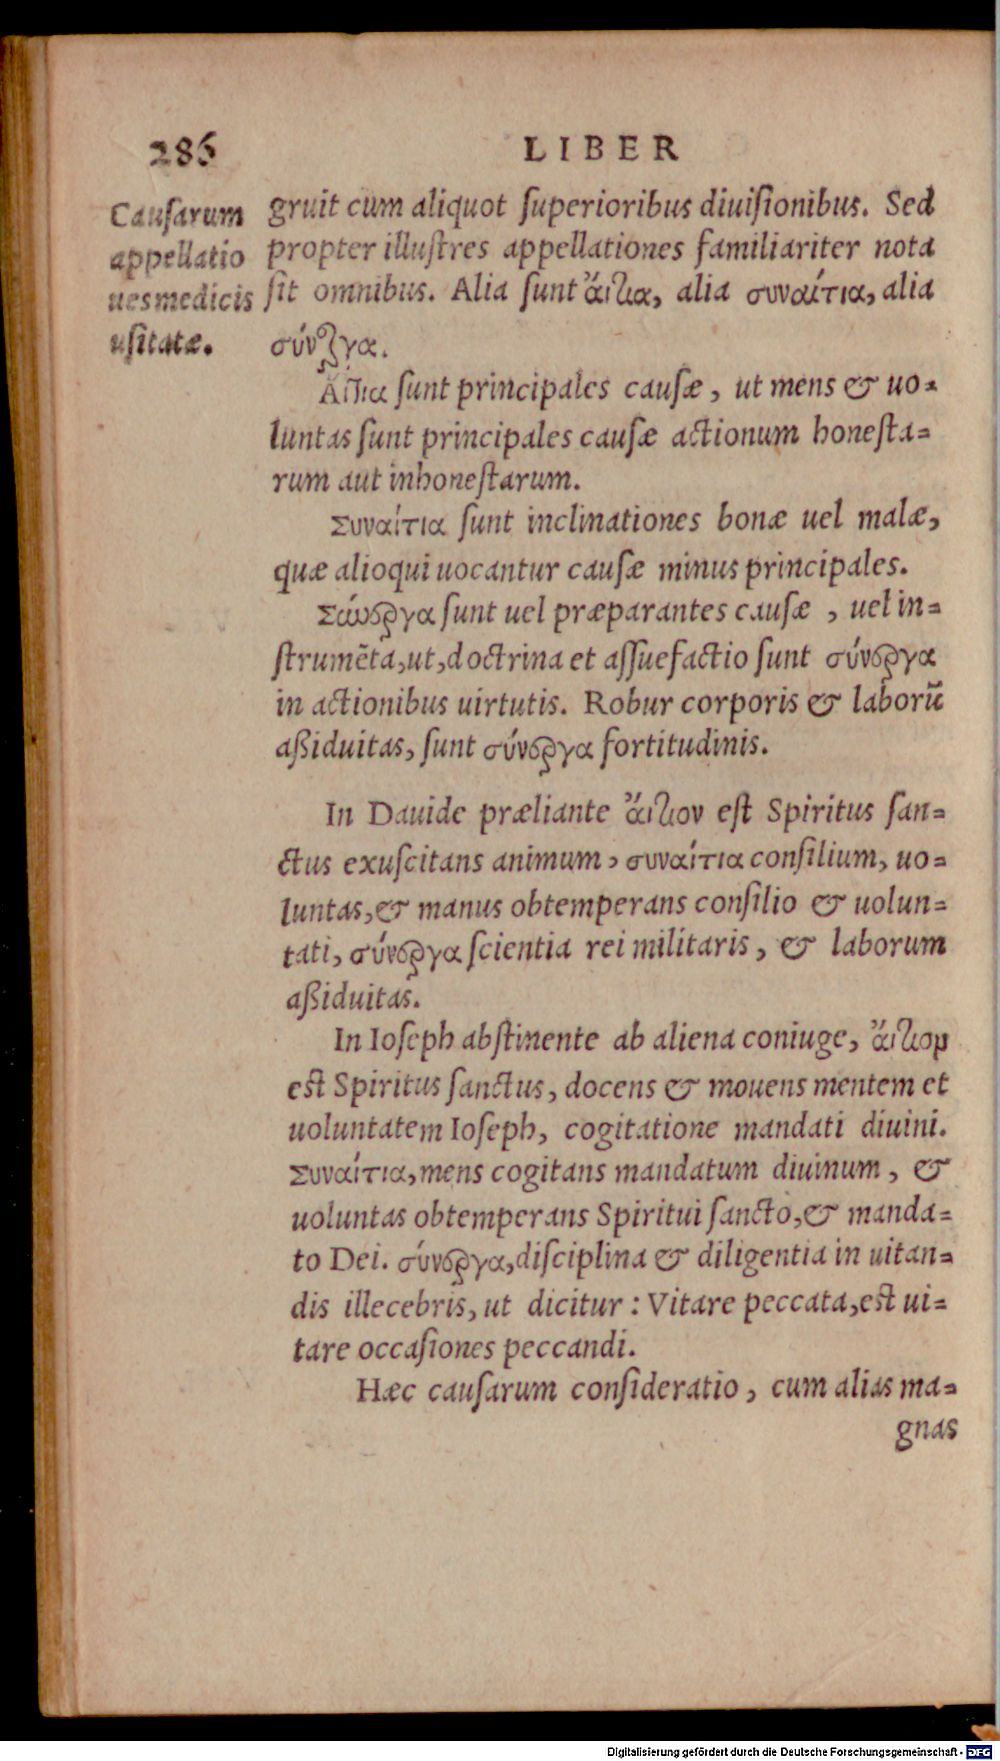 286 LIBER
Causarum
appellatio
ues medicis
usitatæ.
gruit cum aliquot ſuperioribus diuiſionibus. Sed
propter illuſtres appellationes familiariter nota
ſit omnibus. Alia ſunt ἄιτια, alia συναίτια, alia
σύνεργα.
Αἴτια ſunt principales cauſæ, ut mens & uo=
luntas ſunt principales cauſæ actionum honeſta=
rum aut inhoneſtarum.
Συναίτια ſunt inclinationes bonæ uel malæ,
quæ alioqui uocantur cauſæ minus principales.
Σύνεργα ſunt uel præparantes cauſæ, uel in=
ſtrumẽta, ut, doctrina et aſſuefactio ſunt σύνεργα
in actionibus uirtutis. Robur corporis & laborũ
aßiduitas, ſunt σύνεργα fortitudinis.
In Dauide præliante ἄιτιον eſt Spiritus ſan=
ctus exuſcitans animum, συναίτια conſilium, uo=
luntas, & manus obtemperans conſilio & uolun=
tati, σύνεργα ſcientia rei militaris, & laborum
aßiduitas.
In Ioſeph abſtinente ab aliena coniuge, ἄιτιον
eſt Spiritus ſanctus, docens & mouens mentem et
uoluntatem Ioſeph, cogitatione mandati diuini.
Συναίτια, mens cogitans mandatum diuinum, &
uoluntas obtemperans Spiritui ſancto, & manda=
to Dei. σύνεργα, diſciplina & diligentia in uitan=
dis illecebris, ut dicitur: Vitare peccata, eſt ui=
tare occaſiones peccandi.
Hæc cauſarum conſideratio, cum alias ma=
gnas
Digitalisierung gefördert durch die Deutsche Forschungsgemeinschaft - DFG